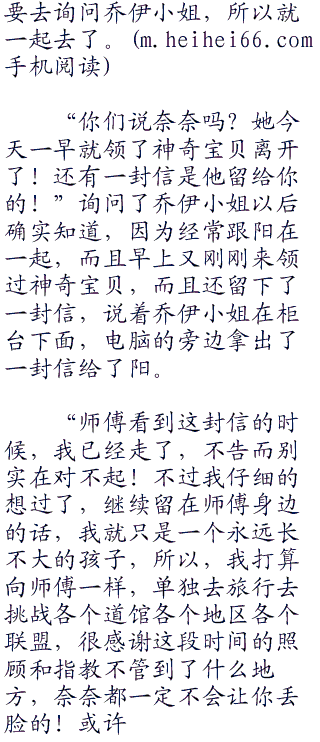 要去询问乔伊小姐，所以就
一起去了。(m.heihei66.com
手机阅读)
“你们说奈奈吗？她今
天一早就领了神奇宝贝离开
了！还有一封信是他留给你
的！”询问了乔伊小姐以后
确实知道，因为经常跟阳在
一起，而且早上又刚刚来领
过神奇宝贝，而且还留下了
一封信，说着乔伊小姐在柜
台下面，电脑的旁边拿出了
一封信给了阳。
“师傅看到这封信的时
候，我已经走了，不告而别
实在对不起！不过我仔细的
想过了，继续留在师傅身边
的话，我就只是一个永远长
不大的孩子，所以，我打算
向师傅一样，单独去旅行去
挑战各个道馆各个地区各个
联盟，很感谢这段时间的照
顾和指教不管到了什么地
方，奈奈都一定不会让你丢
脸的！或许